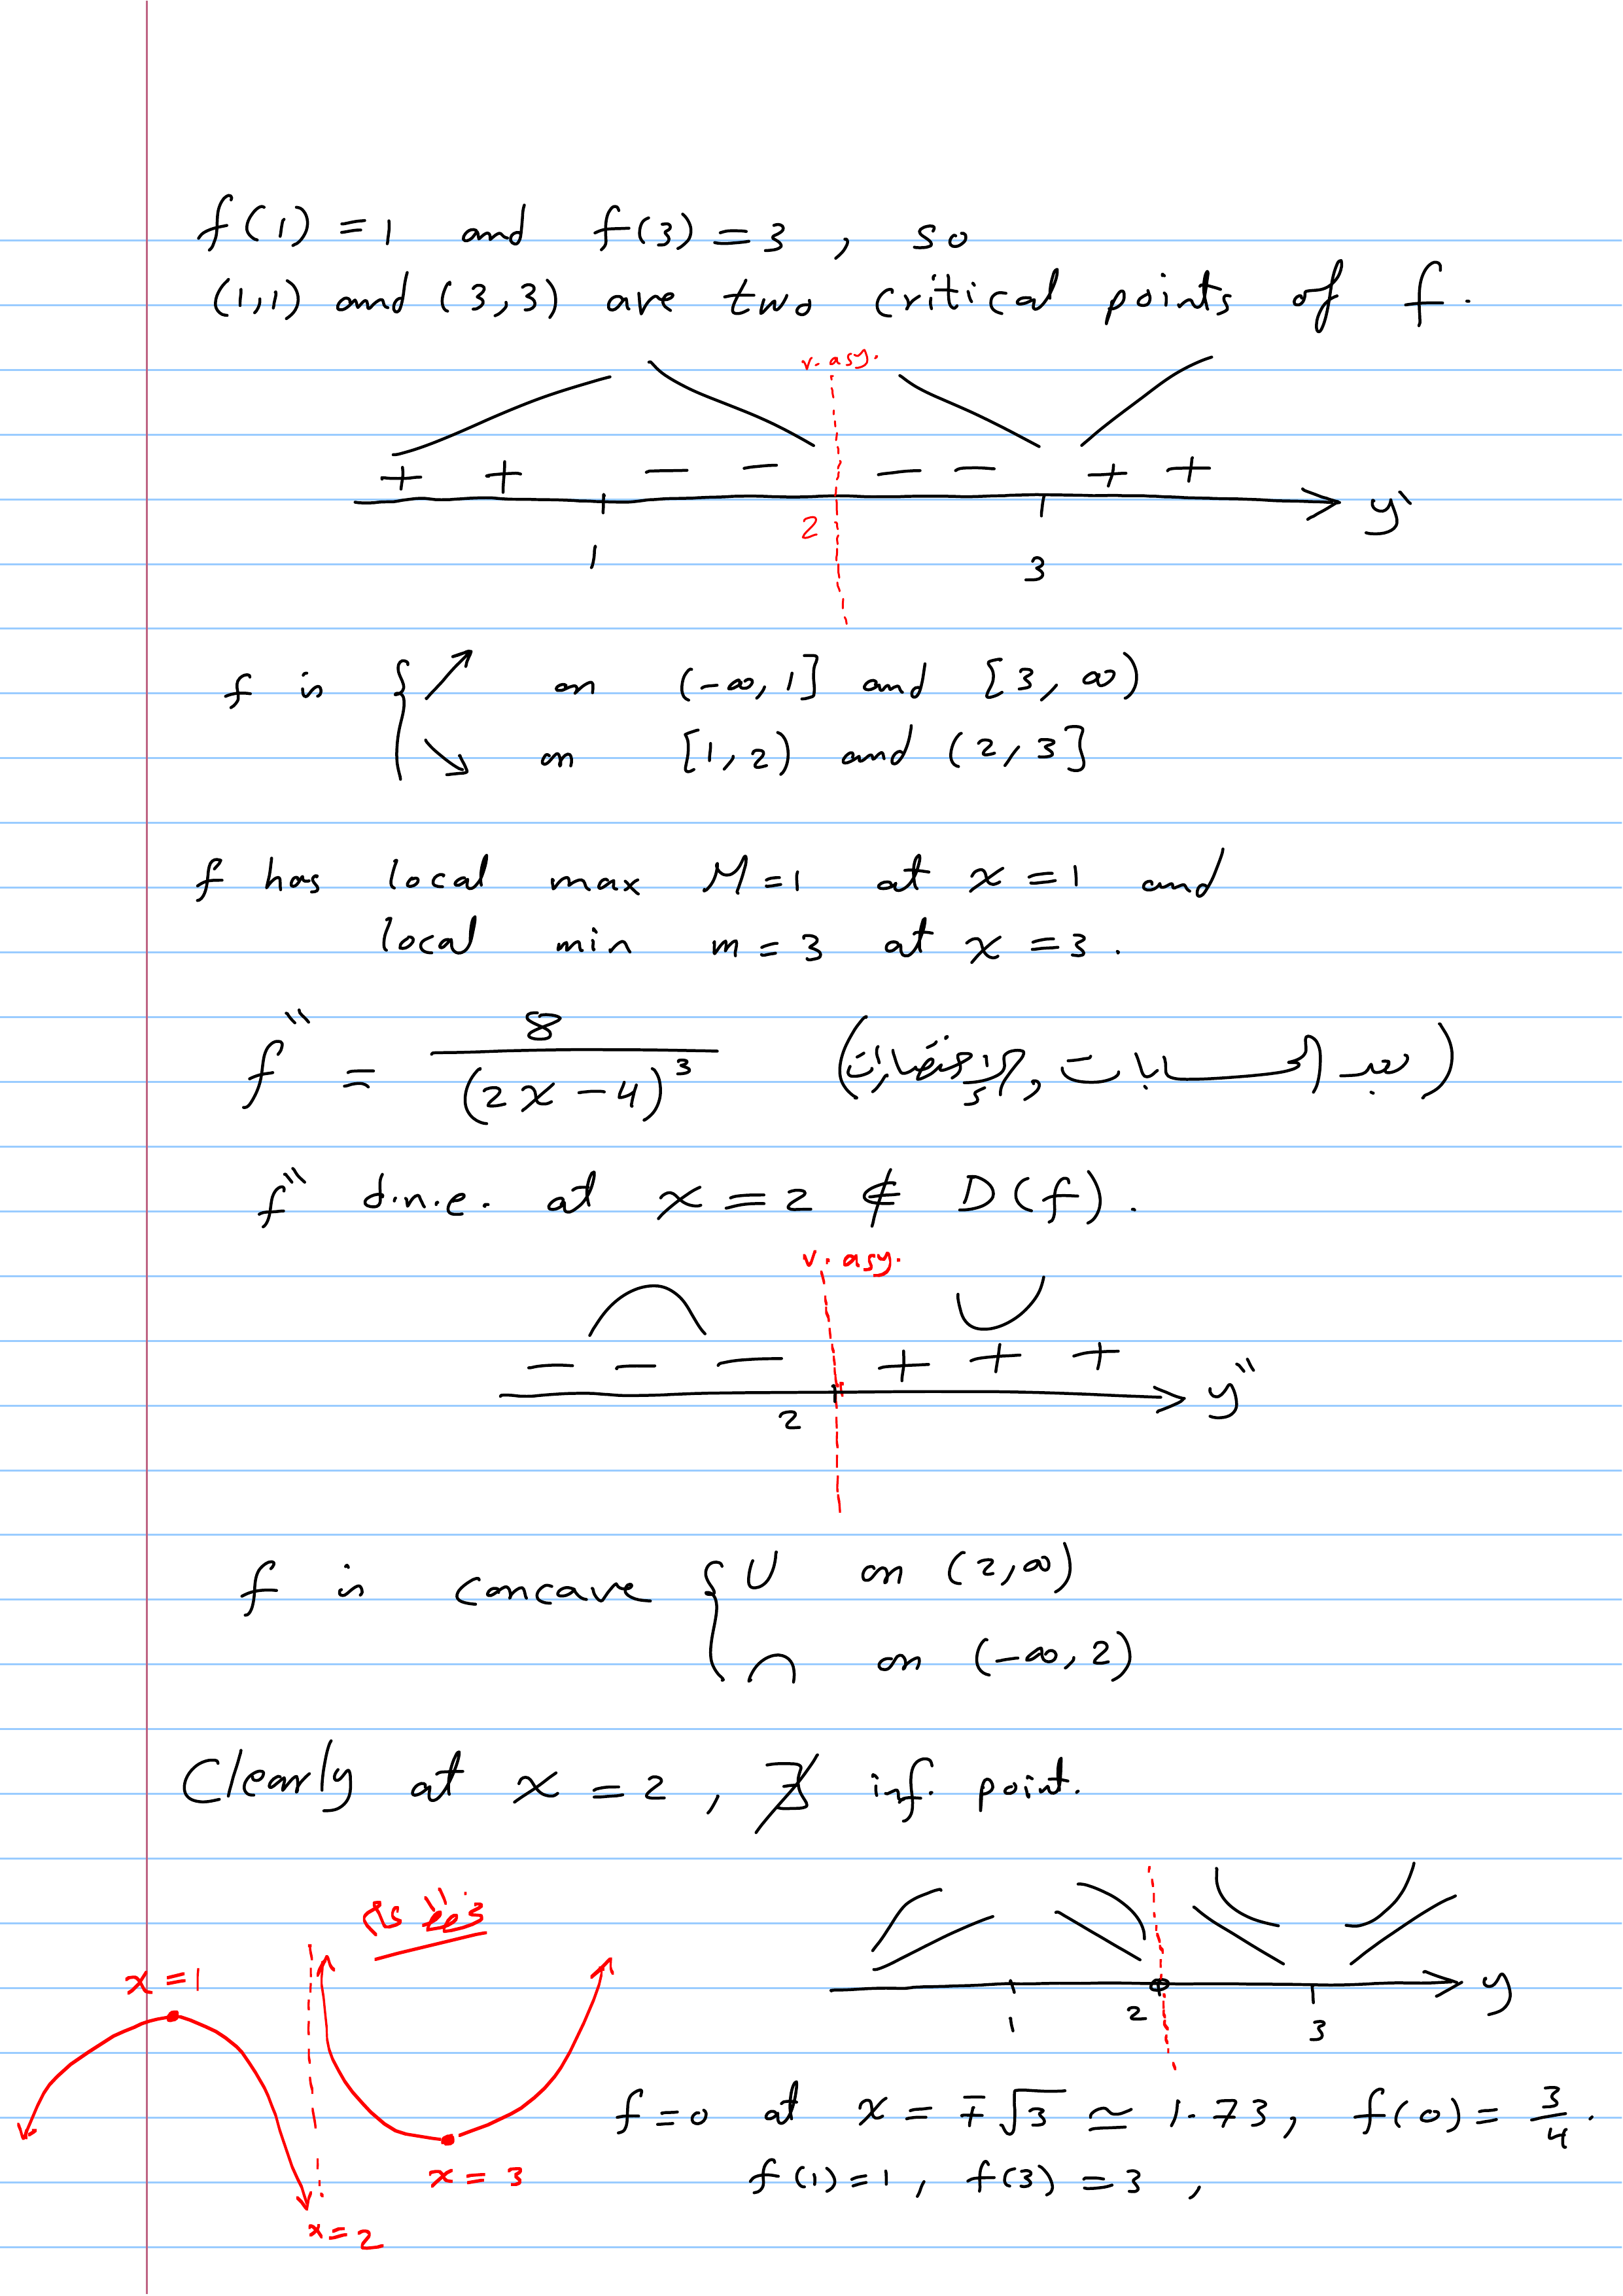 f(1) = 1 and f(3) = 3 , so
(1,1) and (3,3) are two critical points of f.
v. asy.
+ + − − − − + +
y'
1 2 3
f is { ↗ on (-∞, 1] and [3, ∞)
↘ on [1, 2) and (2, 3]
f has local max M = 1 at x = 1 and
local min m = 3 at x = 3.
f'' = 8 / (2x - 4)^3 (بعد الحسابات والإختصارات)
f'' d.n.e. at x = 2 ∉ D(f).
v. asy.
− − − + + +
y''
2
f is concave { ∪ on (2, ∞)
∩ on (-∞, 2)
Clearly at x = 2, ∄ inf. point.
x = 1
x = 3
x = 2
y
1 2 3
f = 0 at x = ∓√3 ≃ 1.73, f(0) = 3/4.
f(1) = 1, f(3) = 3,